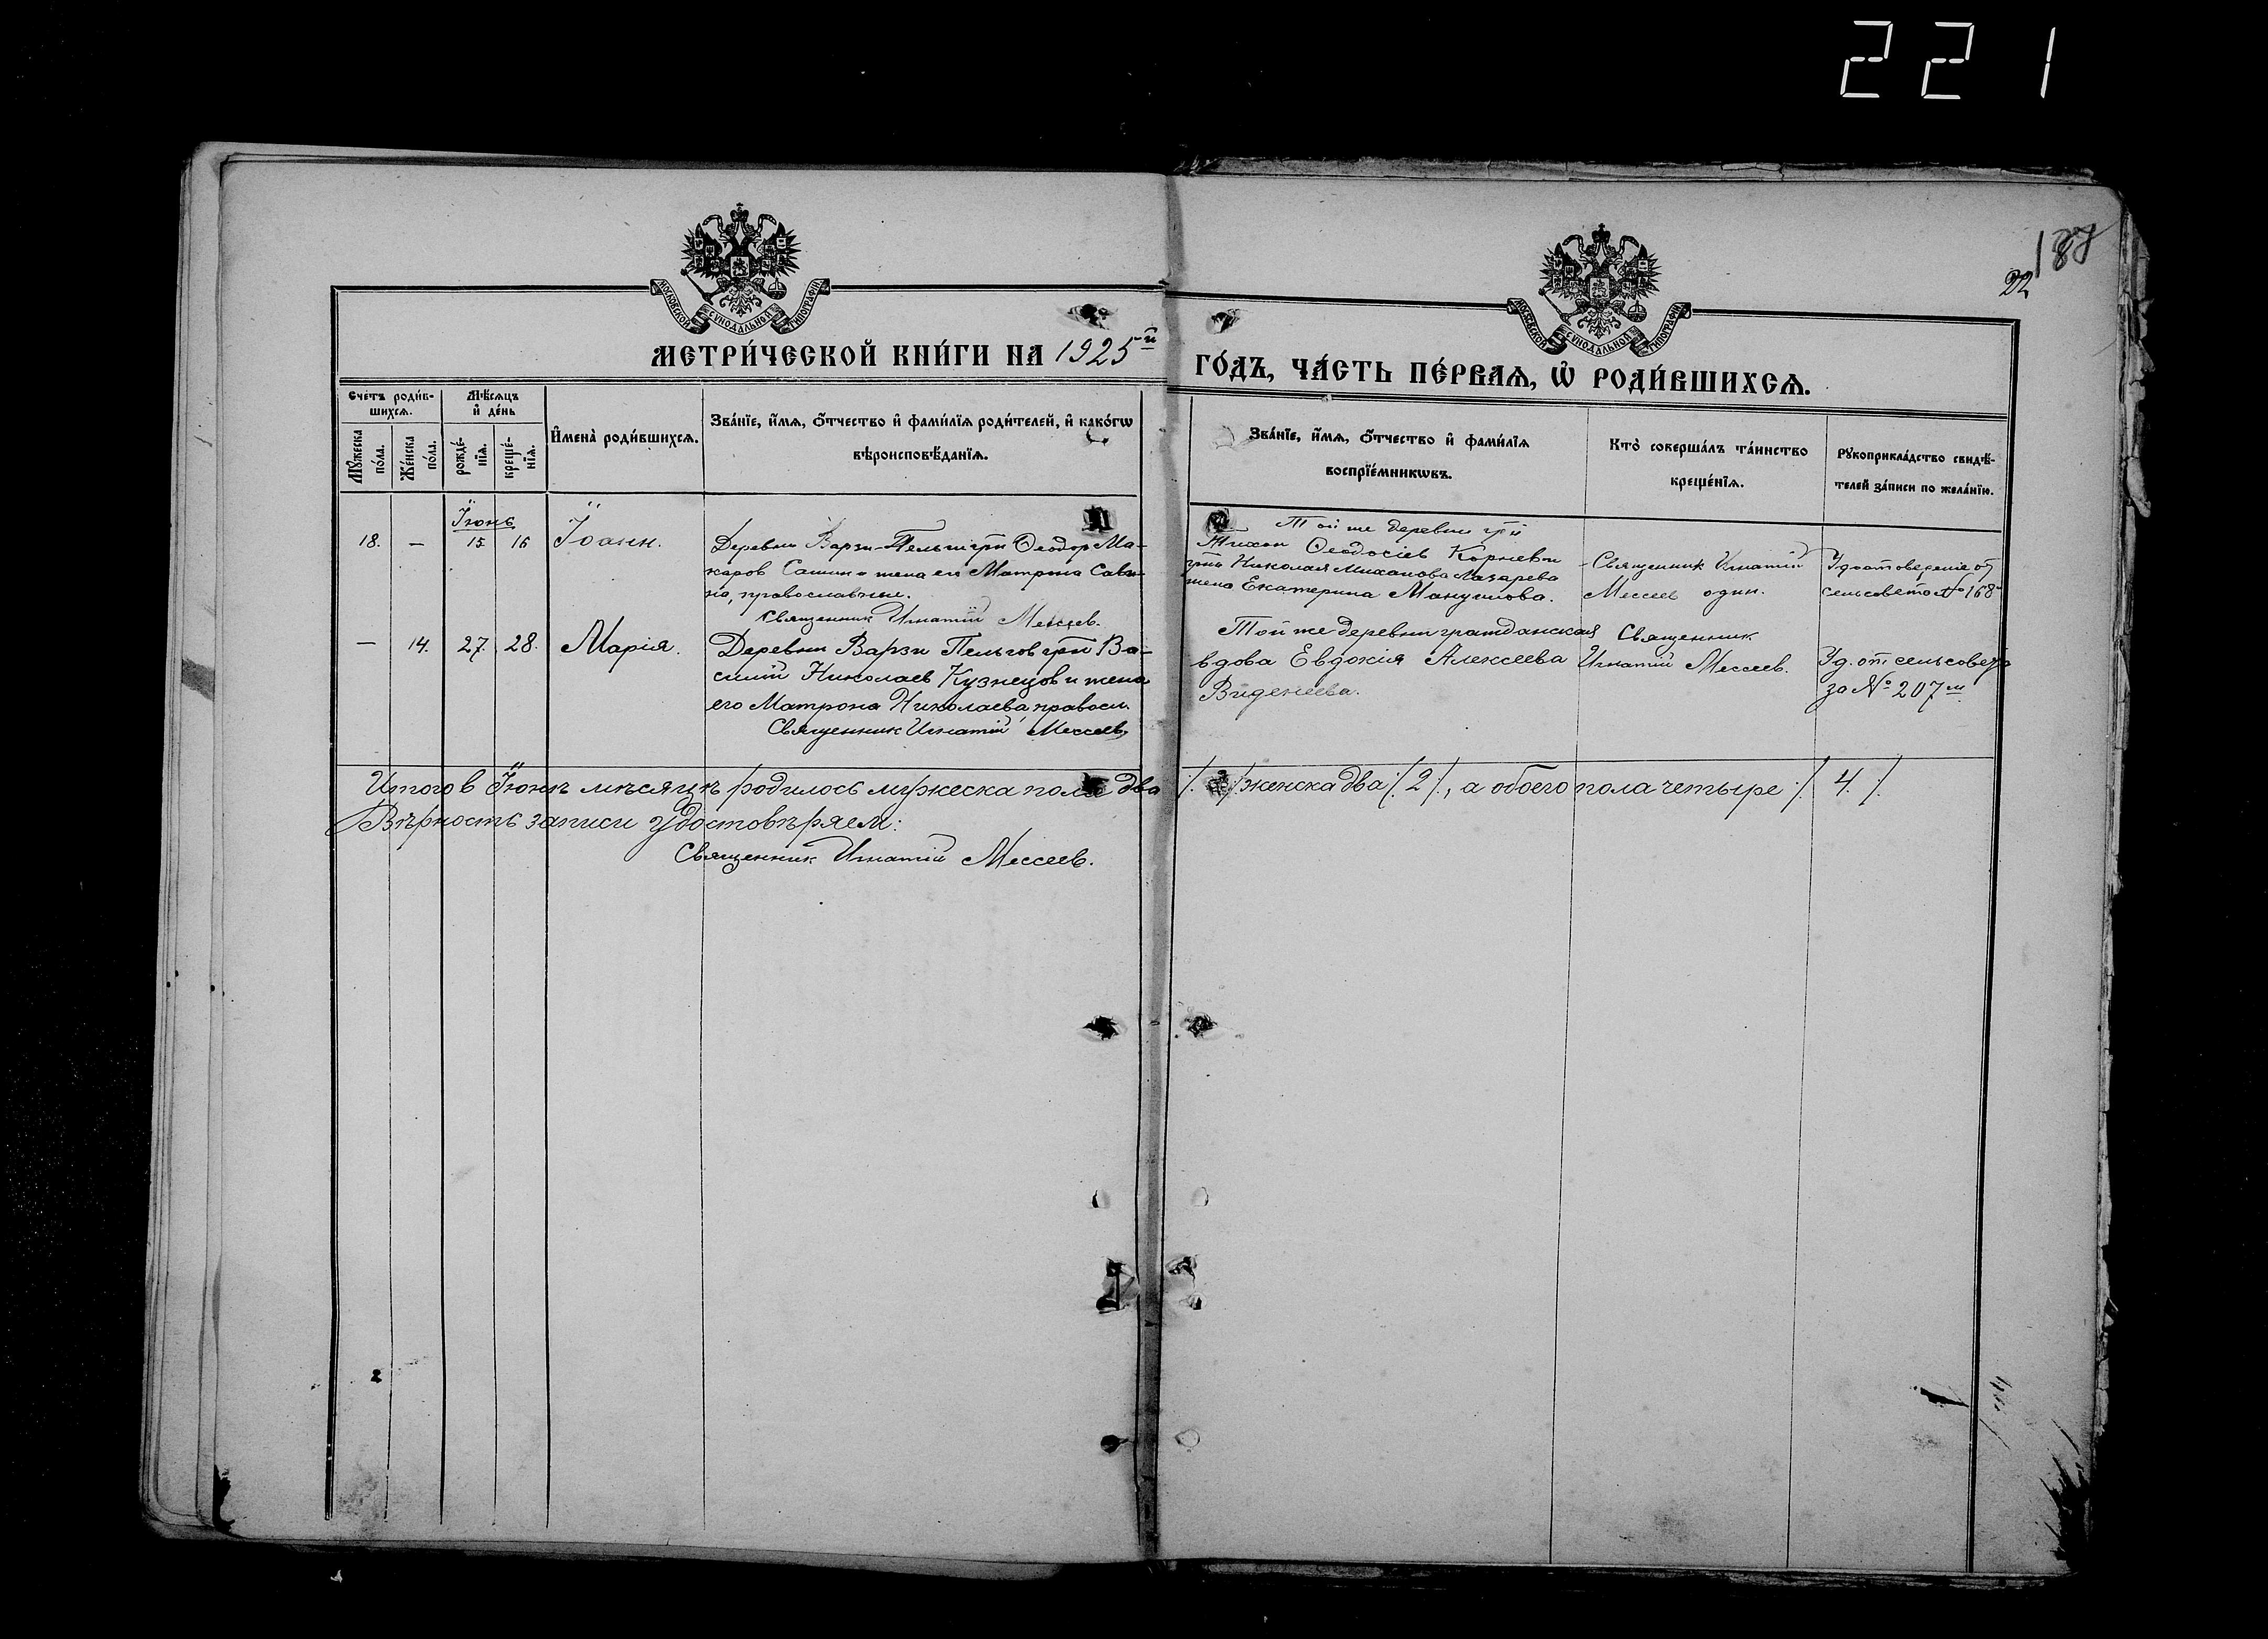 221
188
22
МОСКОВСКОЙ СѴНОДАЛЬНОЙ ТИПОГРАФІИ
МОСКОВСКОЙ СѴНОДАЛЬНОЙ ТИПОГРАФІИ
МЕТРИ́ЧЕСКОЙ КНИ́ГИ НА 1925й ГО́ДЪ, ЧА́СТЬ ПЕ́РВАѦ, Ѡ҆ РОДИ́ВШИХСѦ.
Сче́тъ роди́в-
шихсѧ.
Мѣ́сѧцъ
и҆ де́нь
И҆мена̀ роди́вшихсѧ.
Зва́нїе, и҆́мѧ, ѻ҆́тчество и҆ фами́лїѧ роди́телей, и҆ како́гѡ
вѣроисповѣ́данїѧ.
Зва́нїе, и҆́мѧ, ѻ҆́тчество и҆ фами́лїѧ
воспрїе́мникѡвъ.
Кто̀ соверша́лъ та́инство
креще́нїѧ.
Рꙋкоприкла́дство свидѣ́-
телей за́писи по жела́нїю.
Мꙋ́жеска
по́ла.
Же́нска
по́ла.
рожде́-
нїѧ.
креще́-
нїѧ.
Іюнь
18. — 15 16 Іоанн.
Деревни Варзи-Пельги грн Ѳеодор Ма-
каров Сашин и жена его Матрона Сави-
на, православные.
Священник Игнатий Мессеев.
Той же деревни грн
Тихон Ѳеодосіев Корнеев и
грна Николая Михайлова Лазарева
жена Екатерина Мануилова.
Священник Игнатий
Мессеев один.
Удостоверение от
сельсовета № 168
— 14. 27. 28. Марія.
Деревни Варзи Пельгов грн Ва-
силий Николаев Кузнецов и жена
его Матрона Николаева правосл.
Священник Игнатий Мессеев
Той же деревни гражданская
вдова Евдокія Алексеева
Виденеева.
Священник
Игнатий Мессеев.
Уд. от сельсовета
за № 207м
Итого в Іюнѣ мѣсяцѣ родилось мужеска пола два /: 2 :/ женска два /: 2 :/, а обоего пола четыре /: 4 :/.
Вѣрность записи удостовѣряем:
Священник Игнатий Мессеев.